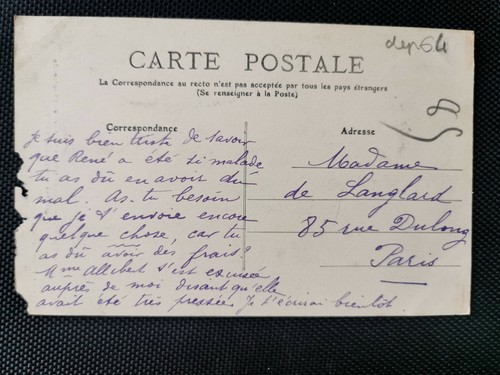 dep 64
CARTE POSTALE
La Correspondance au recto n'est pas acceptée par tous les pays étrangers
(Se renseigner à la Poste)
58
Correspondance
Je suis bien triste de savoir
que René a été si malade
tu as dû en avoir du
mal. As-tu besoin
que je t'envoie encore
quelque chose, car tu
as dû avoir des frais?
Mme Allibert s'est excusée
auprès de moi disant qu'elle
avait été très pressée. Je t'écrirai bientôt.
Adresse
Madame
de Langlard
85 rue Dulong
Paris